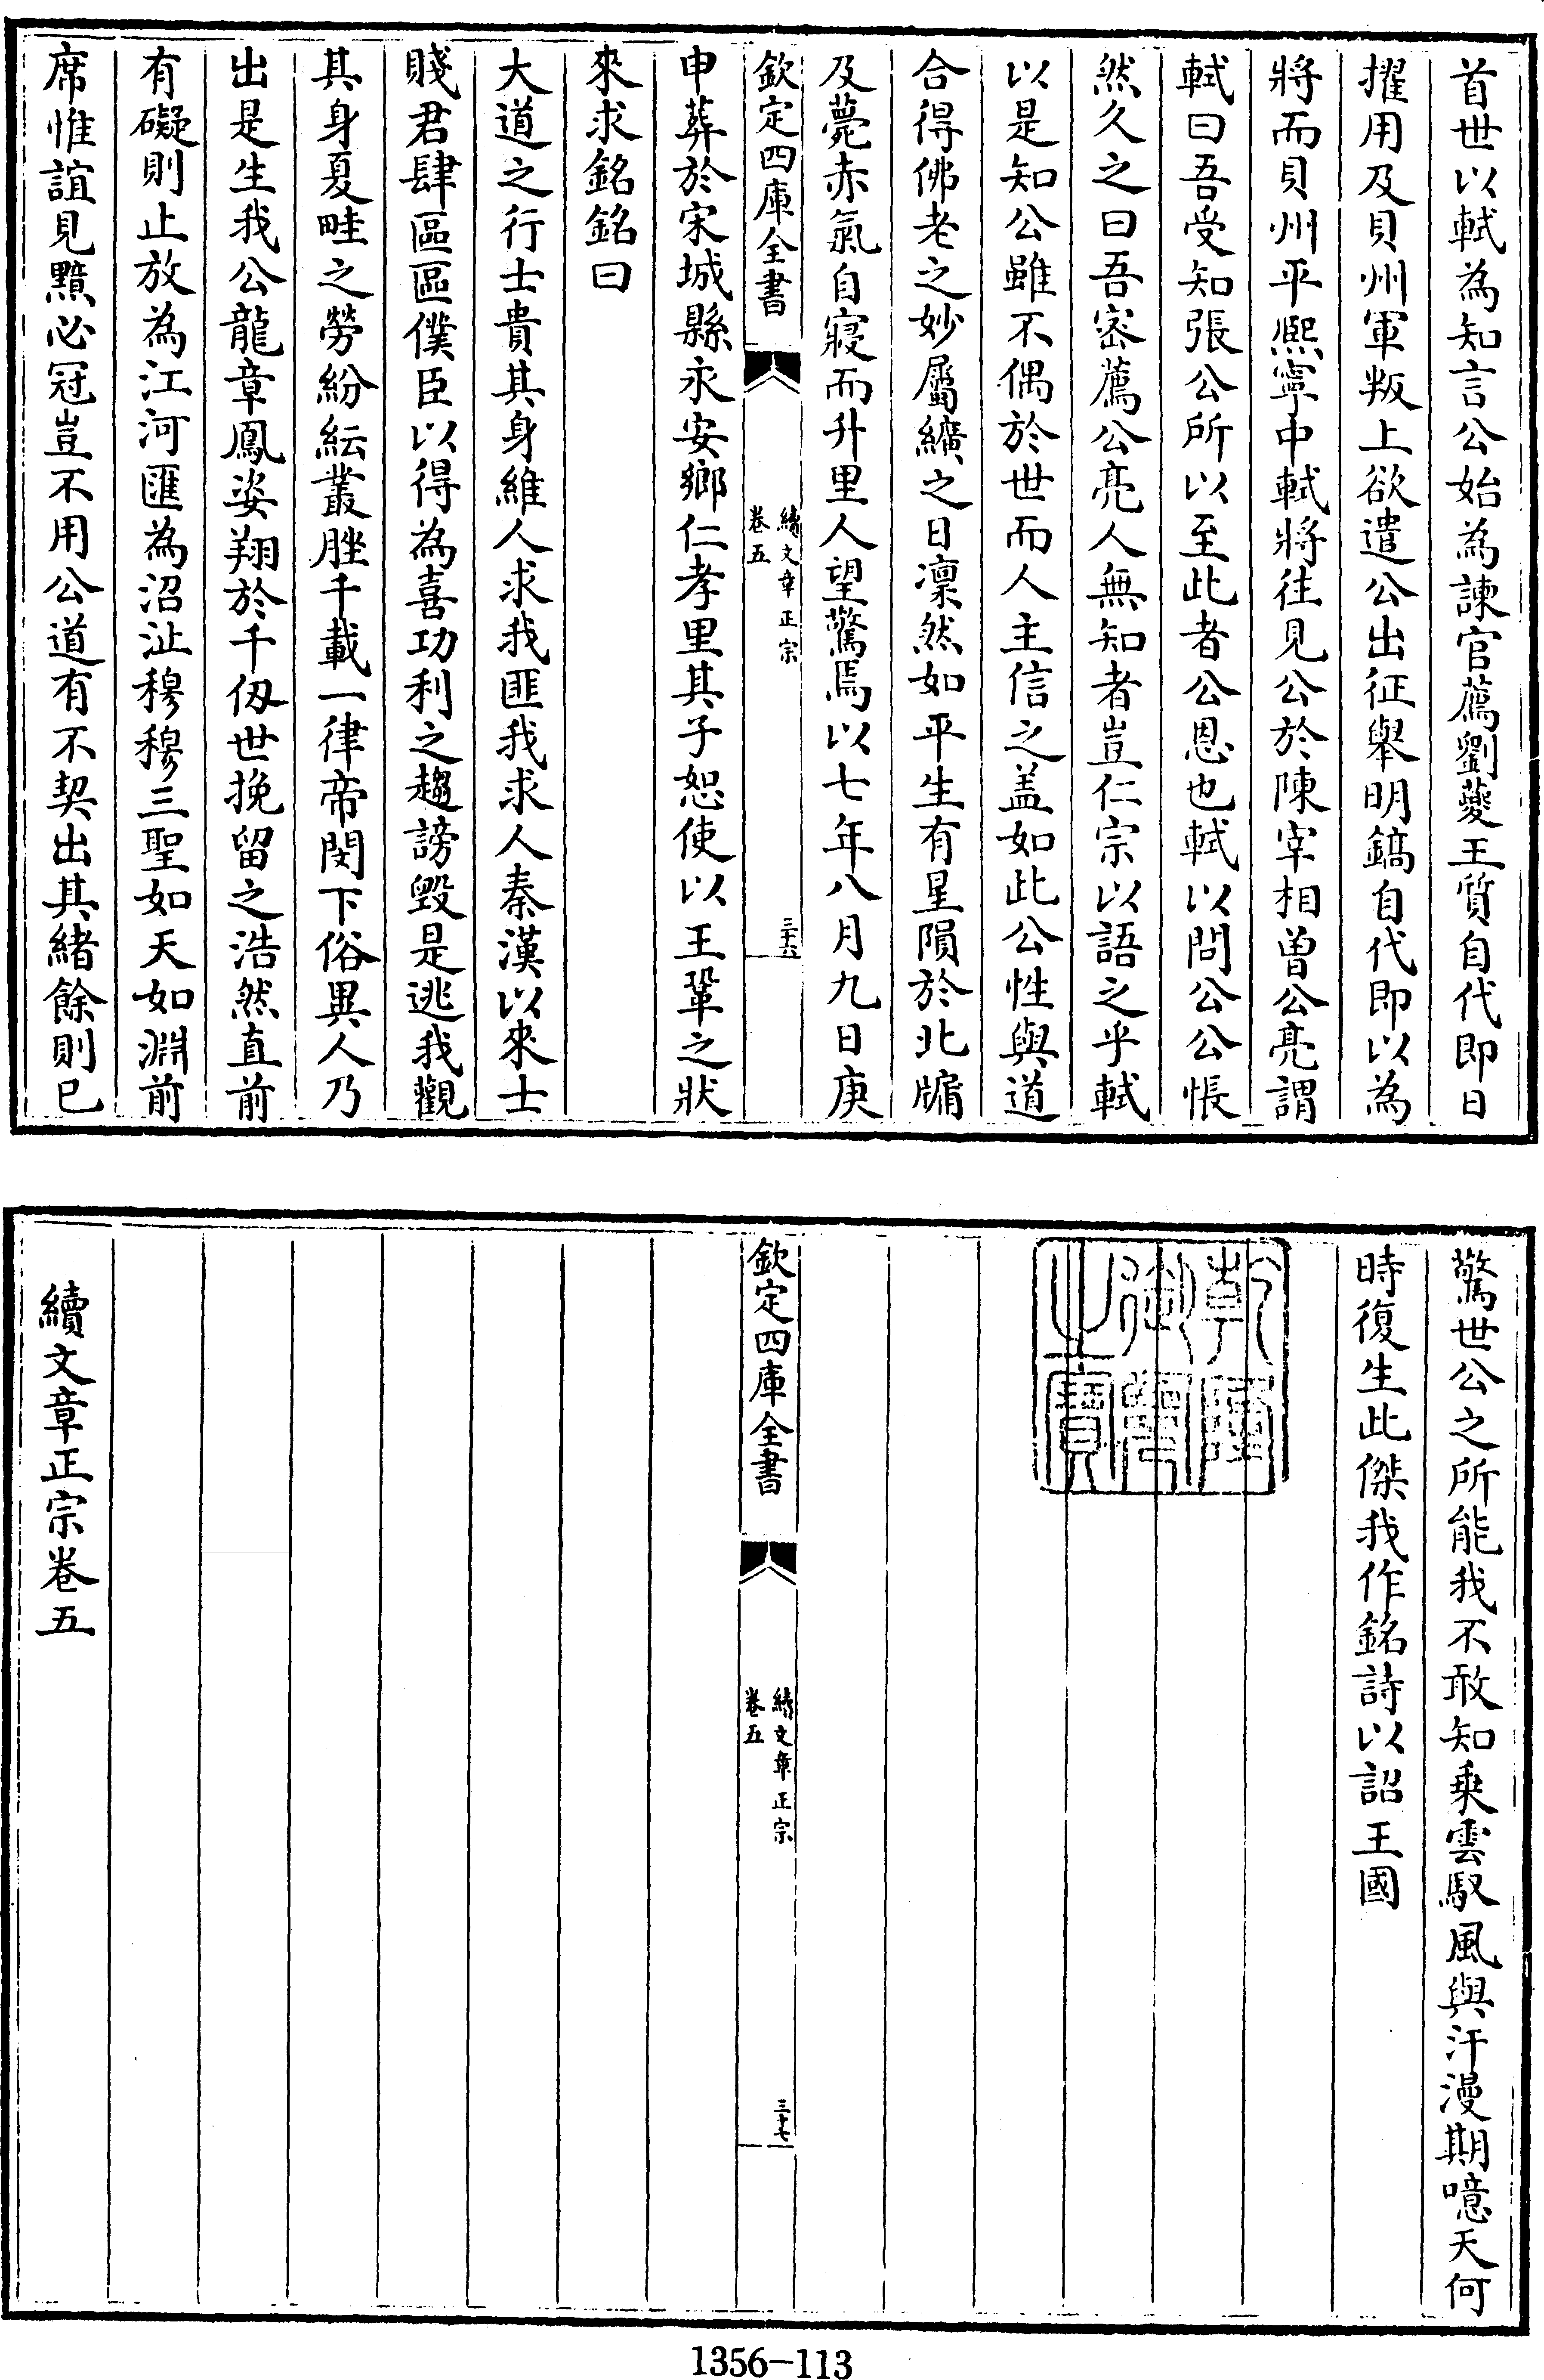 首世以軾為知言公始為諫官薦劉夔王質自代即日
擢用及貝州軍叛上欲遣公出征舉明鎬自代即以為
將而貝州平熈寧中軾將往見公於陳宰相曽公亮謂
軾曰吾受知張公所以至此者公恩也軾以問公公悵
然久之曰吾宻薦公亮人無知者豈仁宗以語之乎軾
以是知公雖不偶於世而人主信之盖如此公性與道
合得佛老之妙屬纊之日凛然如平生有星隕於北牖
及薨赤氣自寢而升里人望驚焉以七年八月九日庚
欽定四庫全書
續文章正宗
卷五
三十六
申葬於宋城縣永安鄉仁孝里其子恕使以王鞏之狀
來求銘銘曰
大道之行士貴其身維人求我匪我求人秦漢以來士
賤君肆區區僕臣以得為喜功利之趨謗毀是逃我觀
其身夏畦之勞紛紜叢脞千載一律帝閔下俗異人乃
出是生我公龍章鳳姿翔於千仭世挽留之浩然直前
有礙則止放為江河匯為沼沚穆穆三聖如天如淵前
席惟誼見黯必冠豈不用公道有不契出其緒餘則已
驚世公之所能我不敢知乗雲馭風與汗漫期噫天何
時復生此傑我作銘詩以詔王國
乾隆御覽之寶
欽定四庫全書
續文章正宗
卷五
三十七
續文章正宗卷五
1356-113